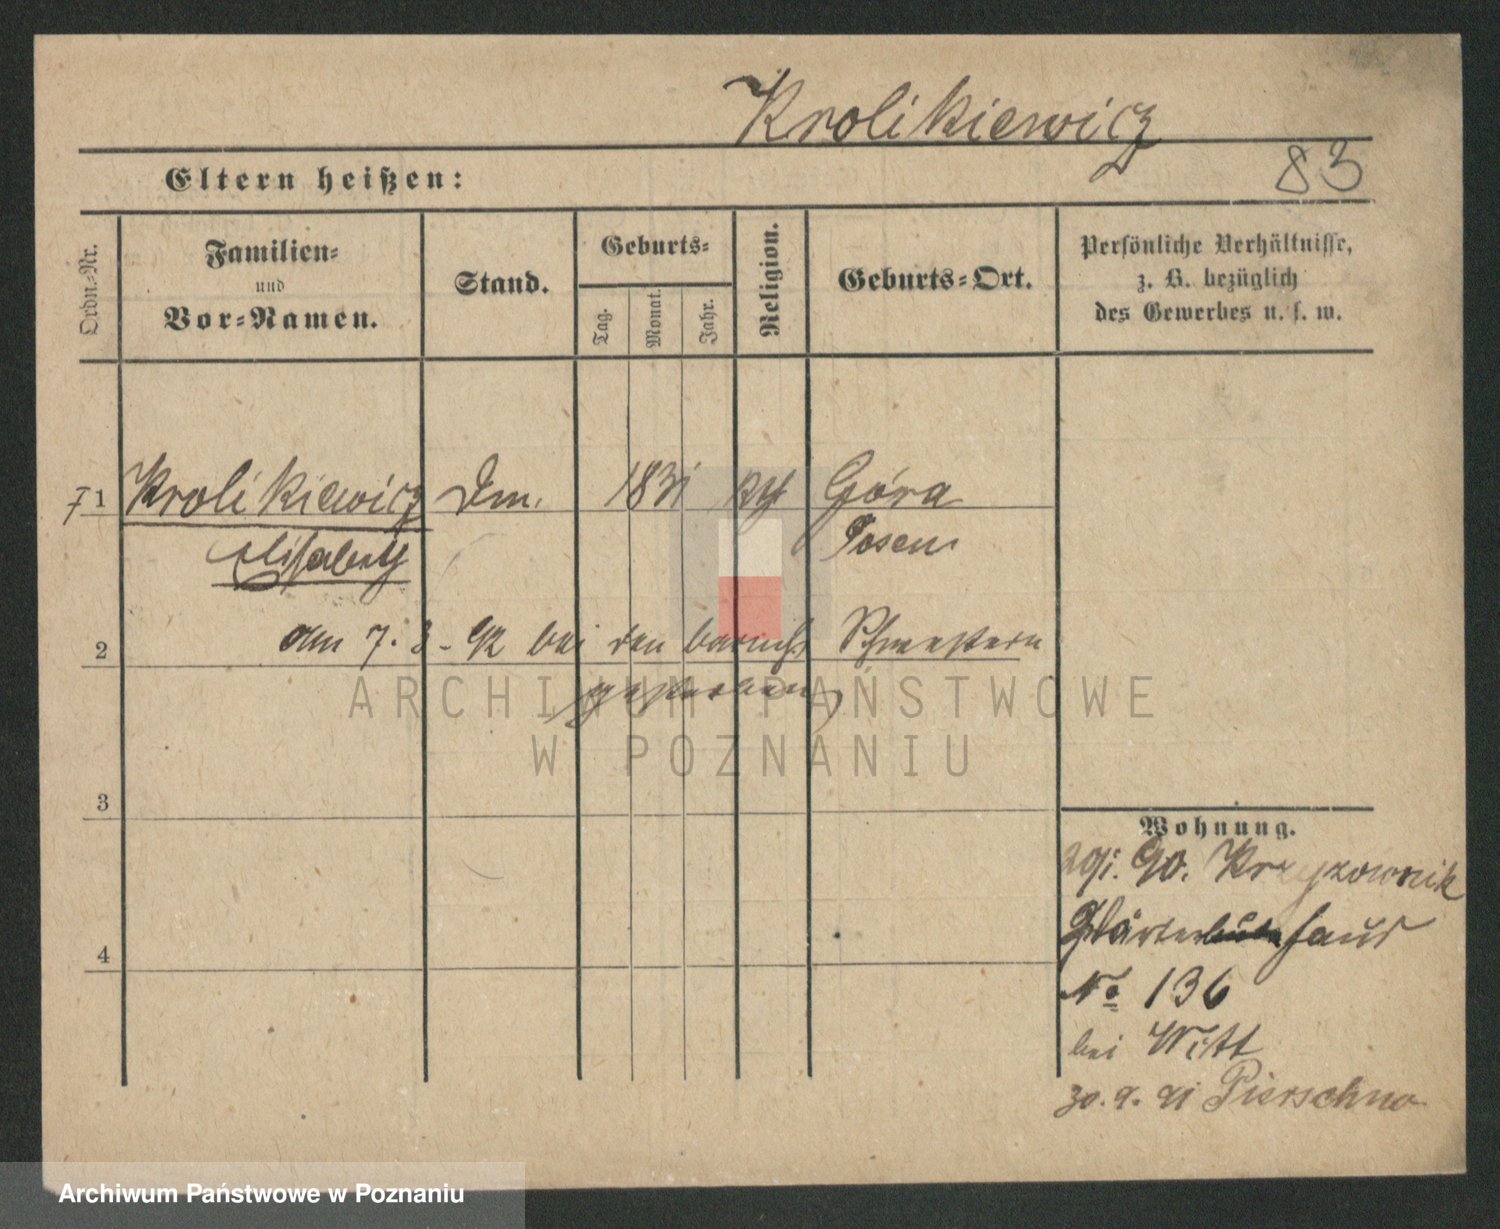 Krolikiewicz
83
Eltern heißen:
Ordn.-Nr.
Familien-
und
Vor-Namen.
Stand.
Geburts-
Tag.
Monat.
Jahr.
Religion.
Geburts-Ort.
Persönliche Verhältnisse,
z. B. bezüglich
des Gewerbes u. s. w.
1 Krolikiewicz 1831 Góra
Elisabeth Posen
2 am 7. 3. 92 bei den barmh. Schwestern
gestorben,
ARCHIWUM PAŃSTWOWE
W POZNANIU
3
4
Wohnung.
90. Krzyzownik
Wärterhaus
No 136
bei Witt
30. 9. 91 Pierschno
Archiwum Państwowe w Poznaniu